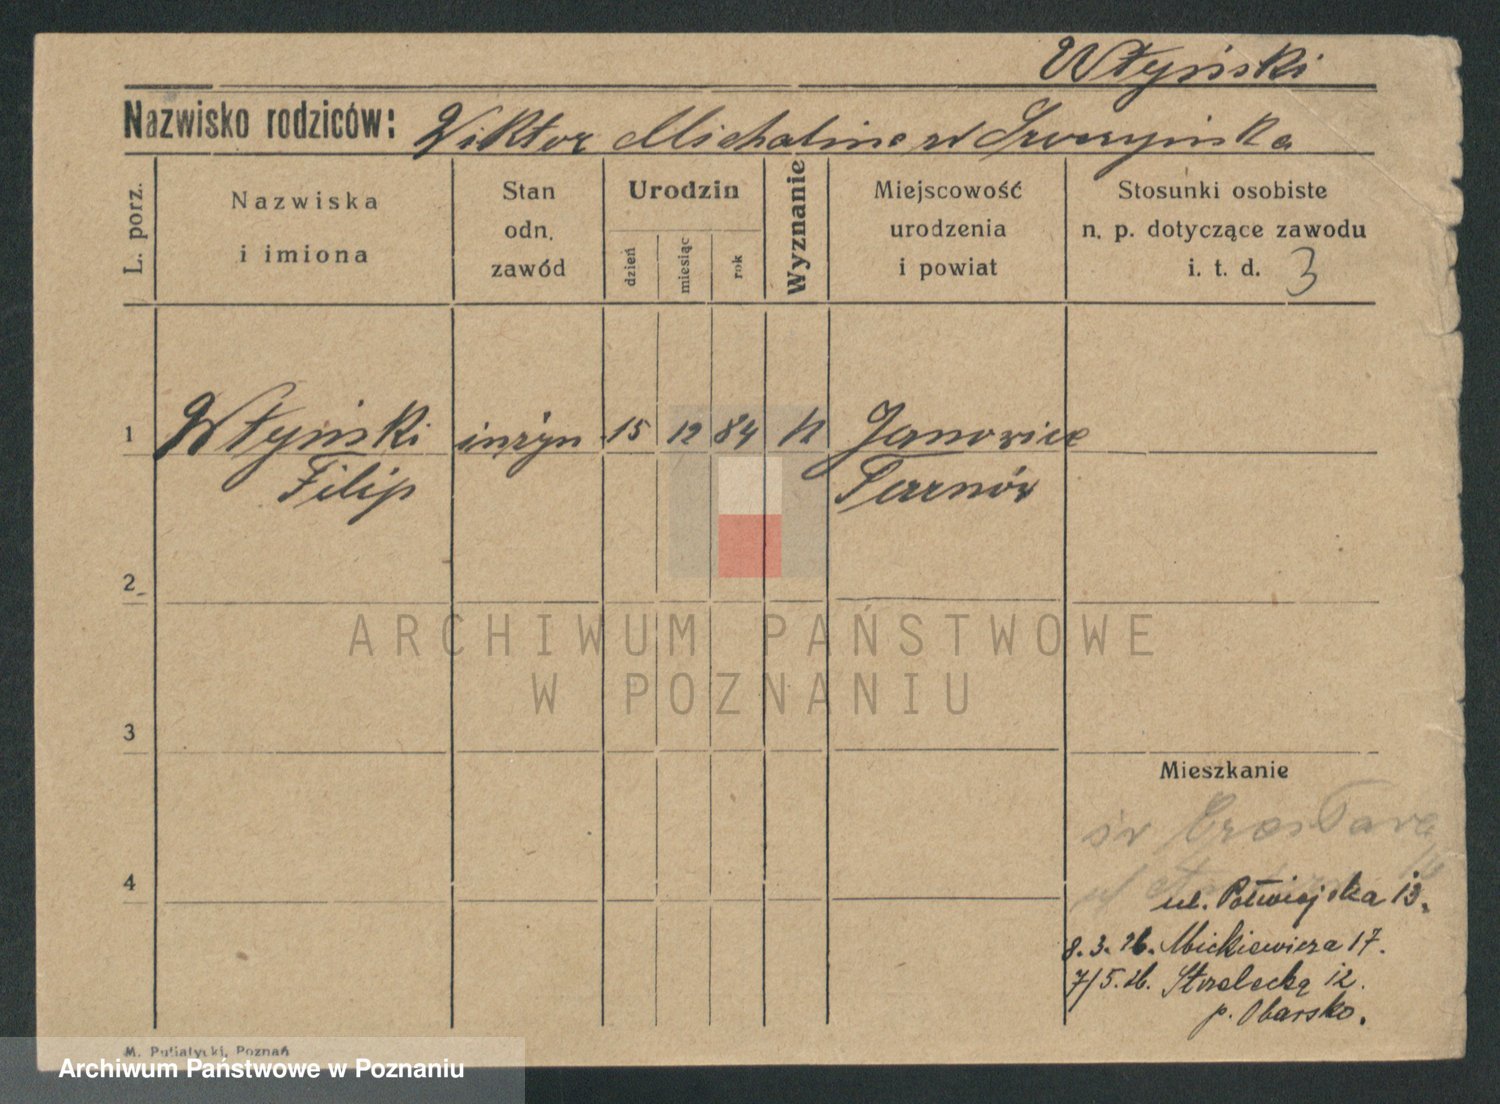 Włyński
Nazwisko rodziców: Wiktor Michalina
L. porz.
Nazwiska
i imiona
Stan
odn.
zawód
Urodzin
dzień
miesiąc
rok
Wyznanie
Miejscowość
urodzenia
i powiat
Stosunki osobiste
n. p. dotyczące zawodu
i. t. d. 3
1 Włyński inżyn 15 12 84 Janowice
Filip Tarnów
2
ARCHIWUM PAŃSTWOWE
W POZNANIU
3
Mieszkanie
4
ul. Półwiejska 13.
8.3.26. Mickiewicza 17.
7/5.26. Strzelecka 12.
p.
M. Putiatycki, Poznań
Archiwum Państwowe w Poznaniu